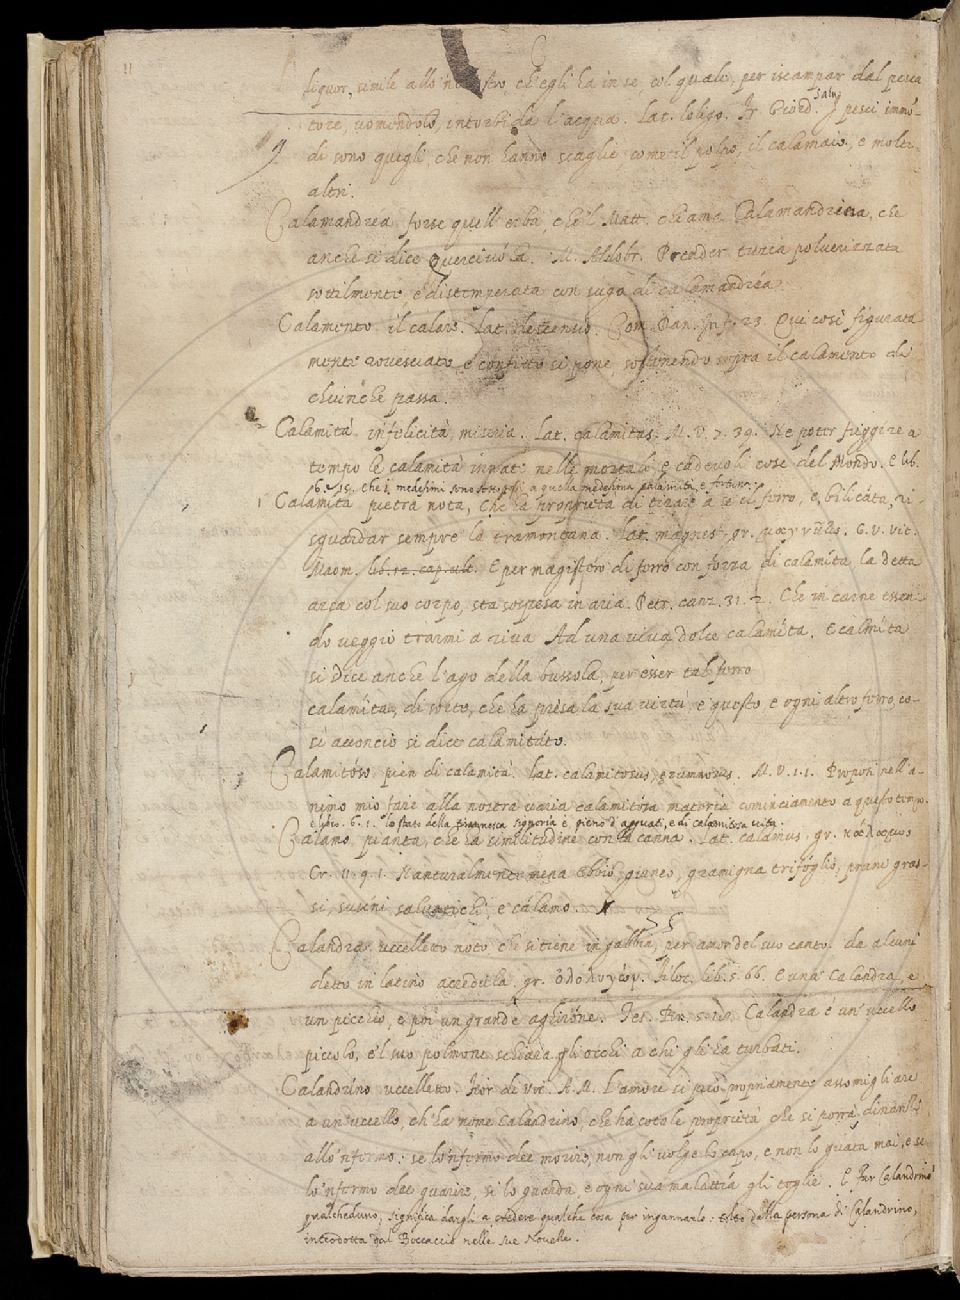 11
liquor, simile allo 'nchiostro, ch'egli ha in se, col quale, per iscampar dal pesca
tore, vomendolo, intorbida l'acqua. Lat. loligo. Fr. Giord. Salv. I pesci immõ-
di sono quegli che non hanno scaglie, come il polpo, il calamaio, e molti
altri.
Calamandréa forse quell' erba, che 'l Matt. chiama Calamandrina, che
anche si dice Querciuóla. M. Aldobr. Prender tuzia polverizzata
sottilmente, e distemperata con sugo di calamandréa.
Calamento. il calare. Lat. descensio. Com. Dan. Inf. 23. Qui così figurata
mente rovesciato, e confitto si pone sostenendo sopra il calamento di
chiunche passa.
Calamità infelicità, miseria. Lat. calamitas. M. V. 7. 39. Ne poter fuggire a
tempo le calamità innate nelle mortali, e cadevoli cose del Mondo. E lib.
6. 15. Che i medesimi sono sottoposti a quella medesima calamità, e fortuna.
Calamíta pietra nota, che ha proprietà di tirare a se il ferro, e, bilicáta, ri-
sguardar sempre la tramontana. Lat. magnes. gr. G. V. vit.
Maom. lib. 12. cap. ult. E per magistero di ferro con forza di calamíta la detta
arca col suo corpo, sta sospesa in aria. Petr. canz. 31. 2. Che in carne essen-
do veggio trarmi a riva Ad una viva dolce calamíta. E calamíta
si dice anche l'ago della bussola, per esser tal ferro
calamíta, di sorto, che ha presa la sua virtù, e questo e ogni altro ferro, co-
sì acconcio si dice calamitáto.
Calamitóso pien di calamità. Lat. calamitosus, ærumnosus. M. V. 1. 1. Proposi nell'a-
nimo mio fare alla nostra varia calamitósa materia cominciamento a questo tempo.
E libro. 6. 1. lo stato della tirannesca signoria è pieno d'agguati, e di calamitosa vita.
Cálamo, pianta, che ha similitudine con la canna. Lat. calamus, gr. κάλαμος
Cr. 11. 9. 1. Naturalmente mena ebbio, giunco, gramigna trifóglio, pruni gras-
si, susini salvatichi, e cálamo.
Calandra uccelletto noto che si tiene in gabbia, per amor del suo canto. da alcuni
detto in latino acredula. gr. ὀλολυγών. Filoc. lib. 5. 66. E una Calandra, e
un picchio, e poi un grande aghiróne. Tes. Br. 5. 19. Calandra é un' uccello
piccolo, e 'l suo polmone schiara gli occhi a chi gli ha turbati.
Calandríno uccelletto. Fior di vir. A. M. L'amore si può propriamente assomigliare
a un' uccello, ch' ha nome Calandrino, che ha cotale proprietà che si porrà, dinanzi
allo 'nfermo: se lo 'nfermo dee morire, non gli volge lo capo, e non lo guata mai, e se
lo 'nfermo dee guarire, si lo guarda, e ogni sua malattia gli toglie. E Far Calandrino
qualcheduno, significa dargli a credere qualche cosa per ingannarlo: tolto dalla persona di Calandrino,
introdotta dal Boccaccio nelle sue Novelle.